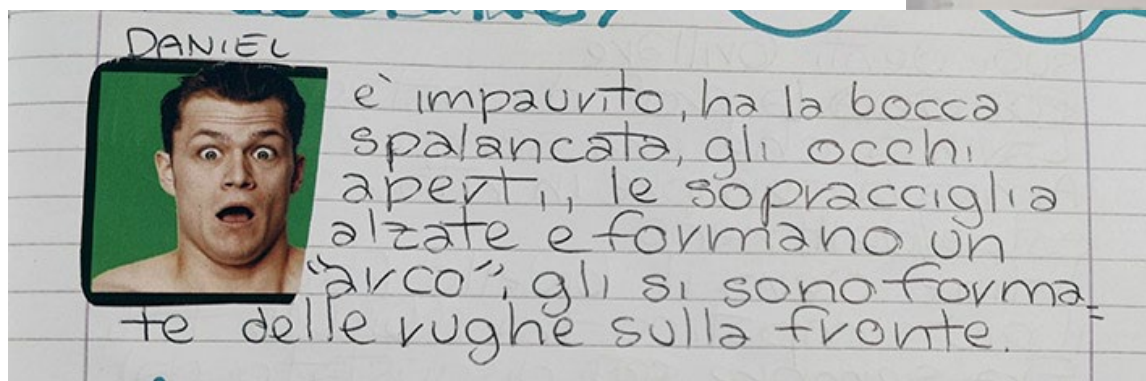 DANIEL
è impaurito, ha la bocca
spalancata, gli occhi
aperti, le sopracciglia
alzate e formano un
"arco", gli si sono forma_
te delle rughe sulla fronte.